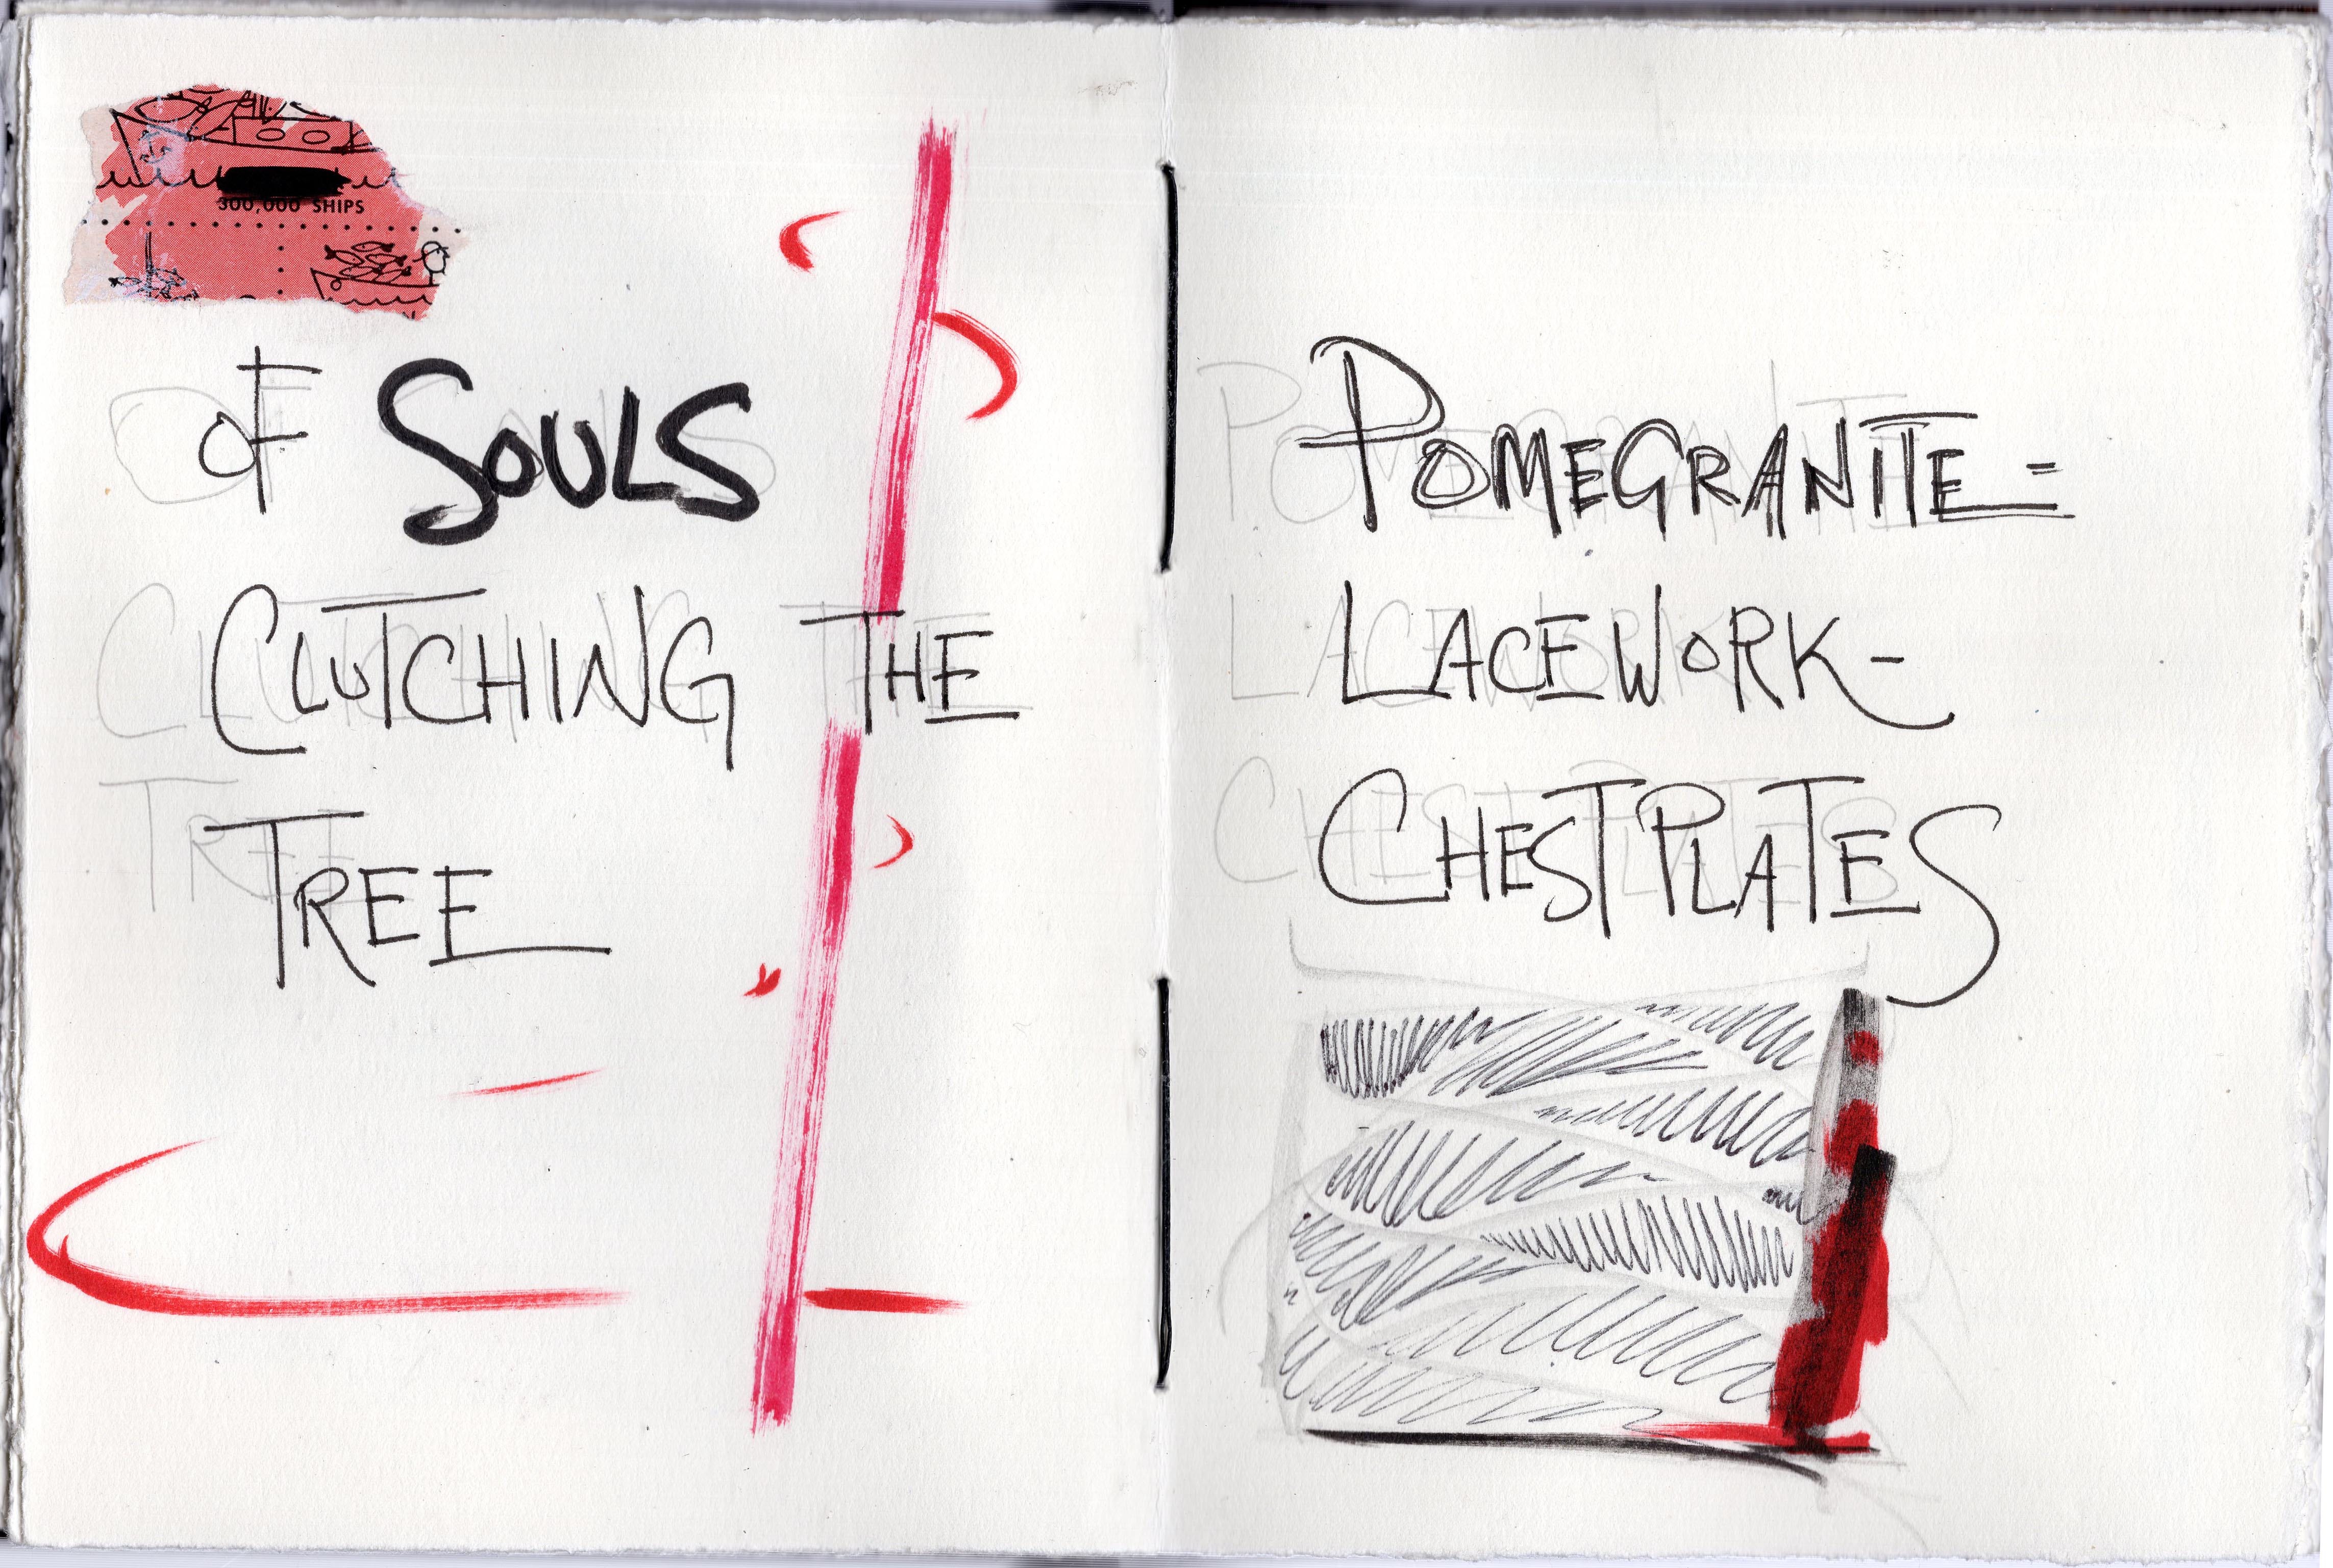 300,000 SHIPS
OF SOULS
CLUTCHING THE
TREE
POMEGRANITE-
LACEWORK-
CHESTPLATES